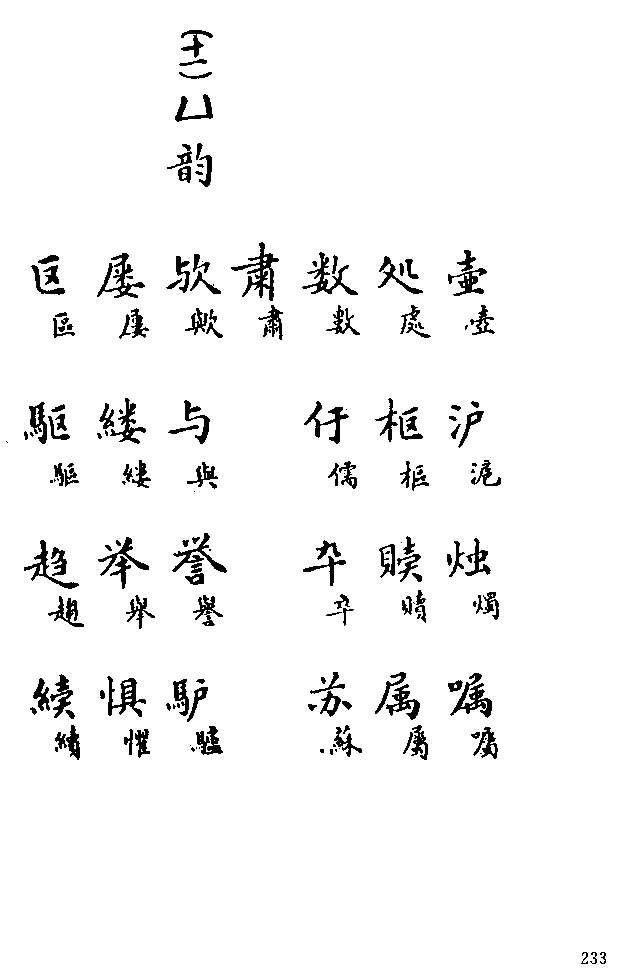 壶 壺
沪 滬
烛 燭
嘱 囑
处 處
枢 樞
赎 贖
属 屬
数 數
儒
卆 卒
苏 蘇
肃 肅
(十一)ㄩ韵
欤 歟
与 與
誉 譽
驴 驢
屡 屢
缕 縷
举 舉
惧 懼
区 區
驱 驅
趋 趨
续 續
233